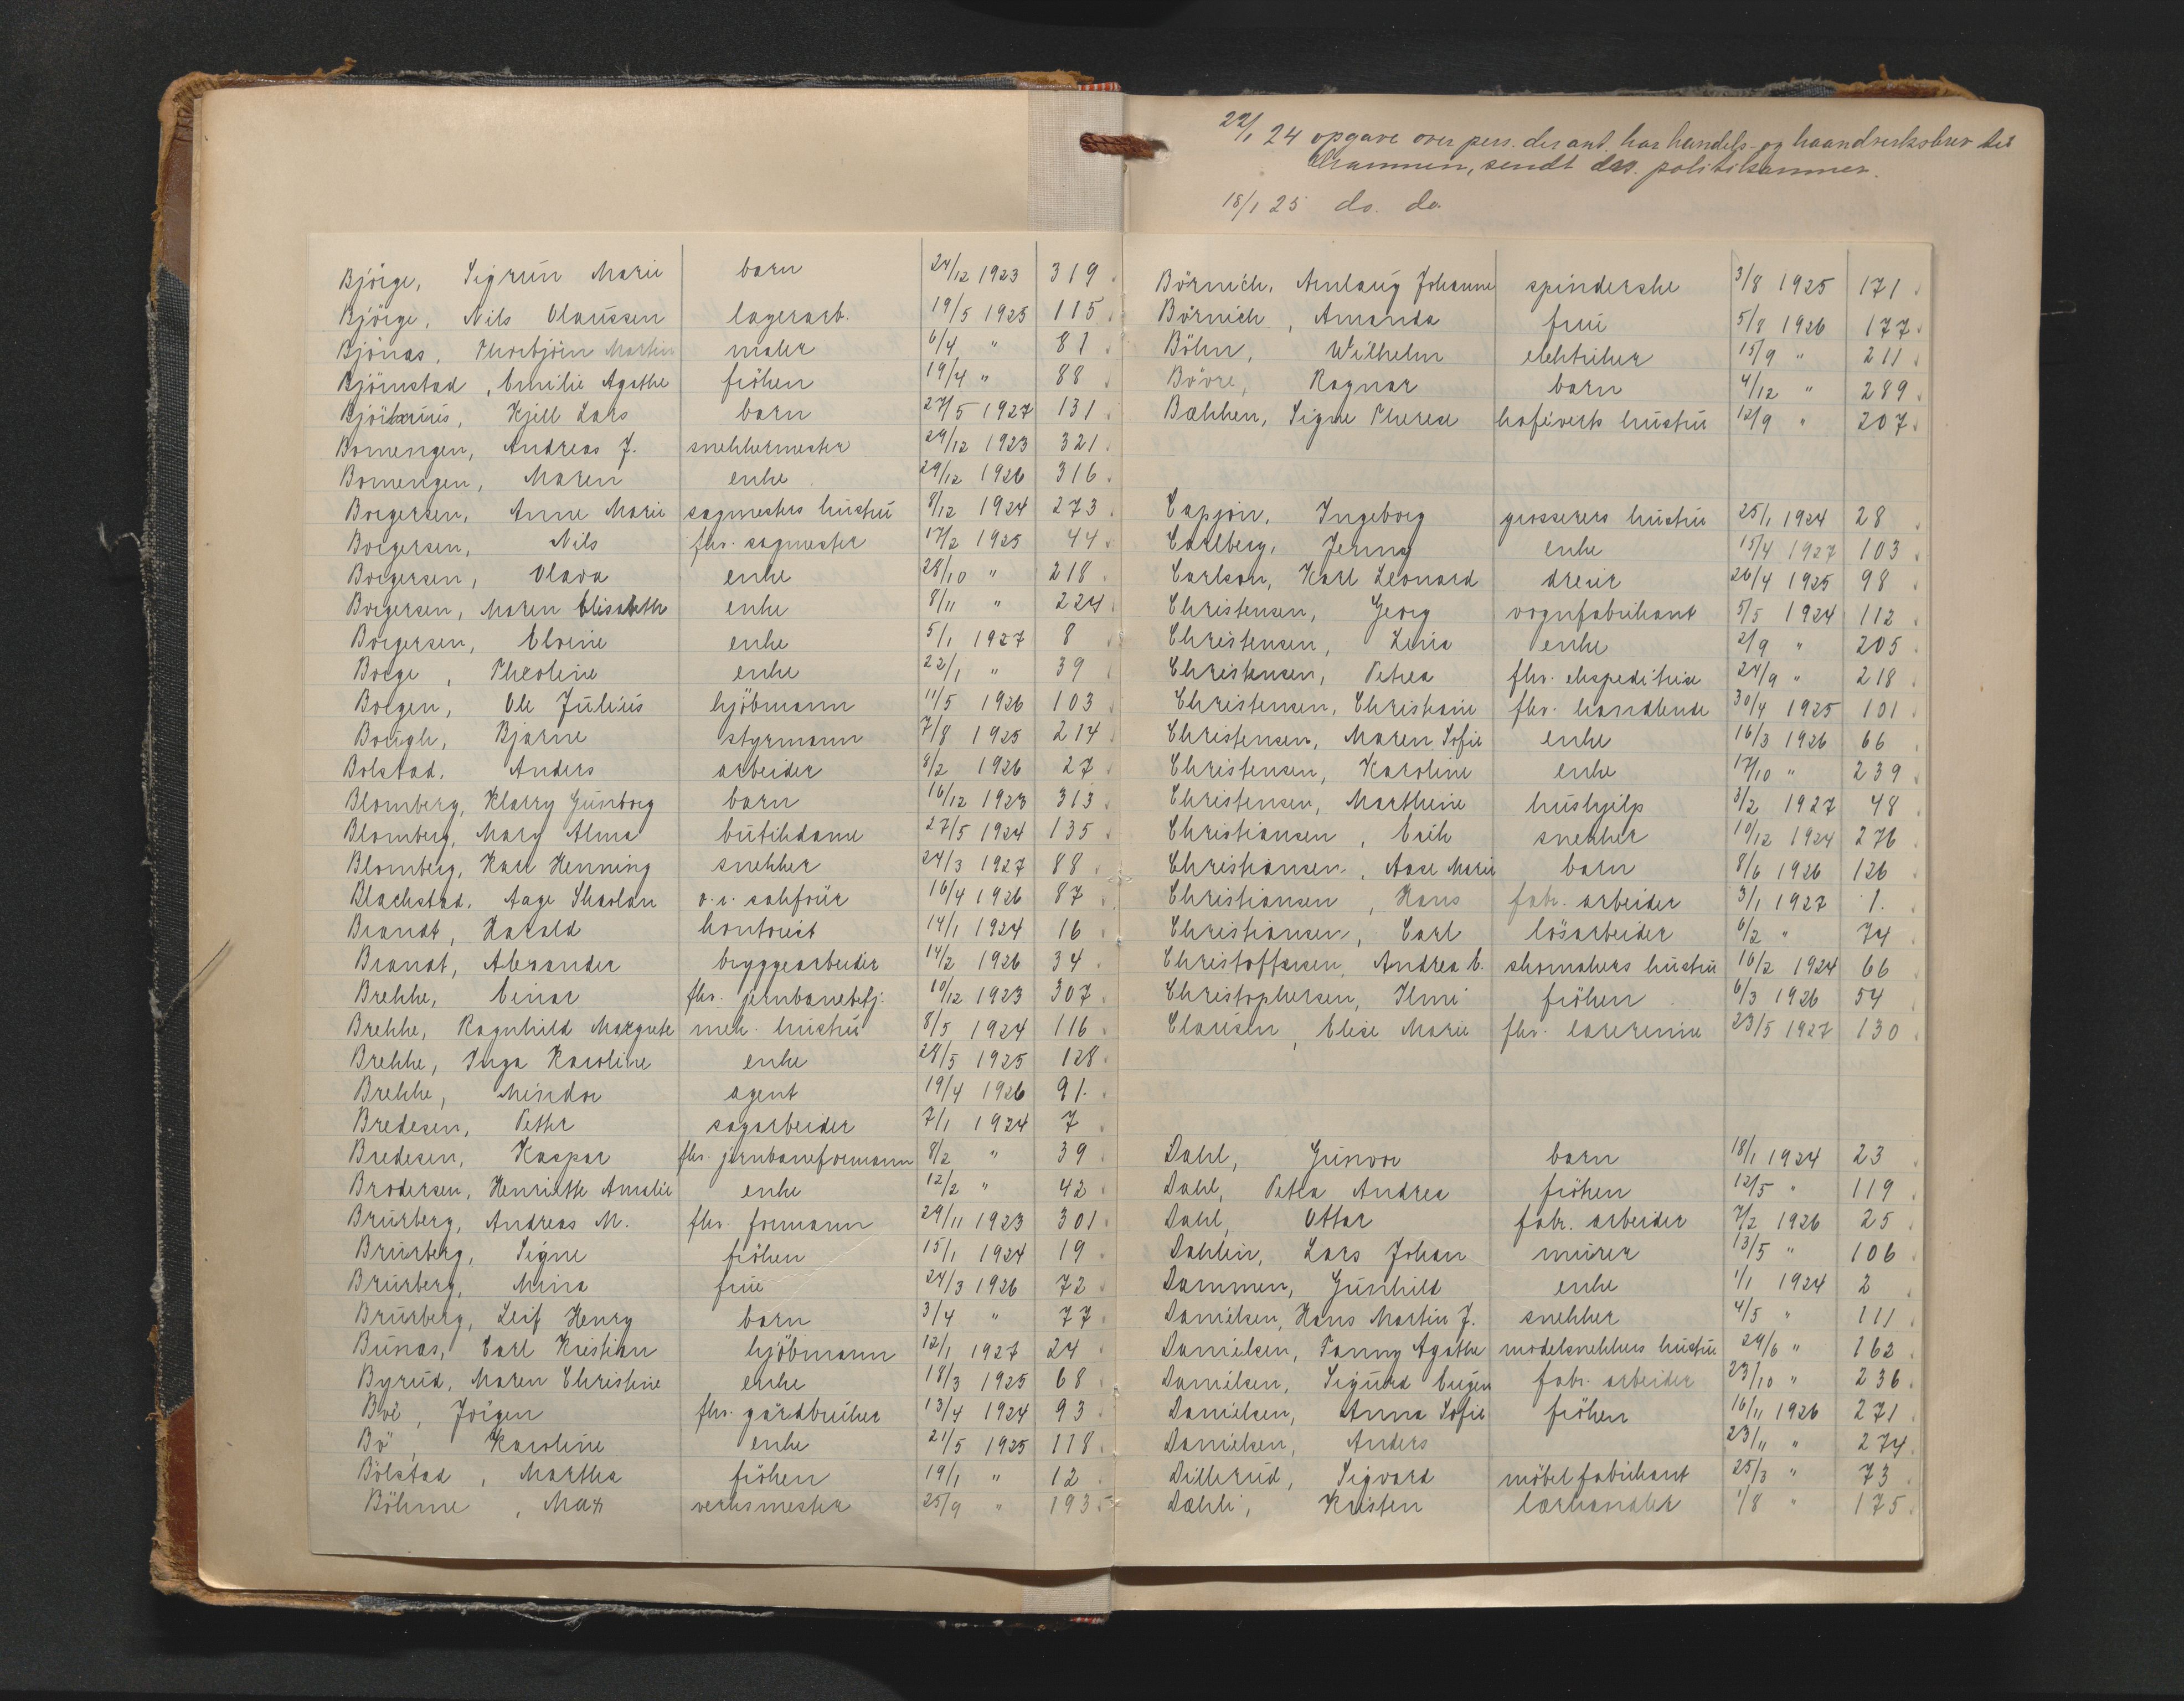 Björge, Sigrun Marie barn 24/12 1923 319.
Björge, Nils Olaussen lagerarb. 19/5 1925 115.
Bjönas, Thorbjörn Martin maler 6/4 " 81.
Björnstad, Emilie Agathe fröken 19/4 " 88.
Kjell Lars barn 27/5 1927 131.
Bomengen, Andreas J. snekkermester 29/12 1923 321.
Bomengen, Maren enke 29/12 1926 316.
Borgersen, Anne Marie sagmesters hustru 8/12 1924 273.
Borgersen, Nils fhv. sagmester 17/2 1925 44.
Borgersen, Olava enke 28/10 " 218.
Borgersen, Maren Elisabeth enke 8/11 " 224.
Borgersen, Elvine enke 5/1 1927 8
Borge, Theoline enke 22/1 " 39
Borgen, Ole Julius kjöbmann 11/5 1926 103.
Borugh, Bjarne styrmann 7/8 1925 214.
Bolstad, Anders arbeider 8/2 1926 27.
Blomberg, Klarry Gunborg barn 16/12 1923 313.
Blomberg, Mary Alma butikdame 27/5 1924 135.
Blomberg, Karl Henning snekker 24/3 1927 88.
Blachstad, Aage Skavlan o.r. sakförer 16/4 1926 87.
Brandt, Harald kontorist 14/1 1924 16
Brandt, Alexander bryggearbeider 14/2 1926 34.
Brekke, Einar fhv. jernbanebetj. 10/12 1923 307.
Brekke, Ragnhild Margrete mek. hustru 8/5 1924 116.
Brekke, Inga Karoline enke 28/5 1925 128.
Brekke, Mindor agent 19/4 1926 91.
Bredesen, Petter sagarbeider 7/1 1924 7.
Bredesen, Kaspar fhv. jernbaneformann 8/2 " 39.
Brodersen, Henriette Amalie enke 12/2 " 42.
Brurberg, Andreas M. fhv. formann 29/11 1923 301.
Brurberg, Signe fröken 15/1 1924 19.
Brurberg, Mina frue 24/3 1926 72.
Brurberg, Leif Henry barn 3/4 " 77.
Bunæs, Carl Kristian kjöbmann 12/1 1927 24.
Byrud, Maren Christine enke 18/3 1925 68.
Boe, Jörgen fhv. gårdbruker 13/4 1924 93.
Bö, Karoline enke 21/5 1925 118.
Bölstad, Marthea fröken 19/1 " 12.
Böhme, Max verksmester 25/9 " 193.
22/1 24 opgave over pers. der ant. har handels- og haandverksbrev til
Drammen, sendt drs. politikammer.
18/1 25 do. do.
Börnich, Anlaug Johanne spinderske 3/8 1925 171.
Börnich, Amanda frue 5/8 1926 177.
Böhn, Wilhelm elektriker 15/9 " 211.
Bövre, Ragnar barn 4/12 " 289.
Bækken, Signe Therese kaféverts hustru 12/9 " 207.
Capjon, Ingeborg grosserers hustru 25/1 1924 28.
Carlberg, Jenny enke 15/4 1927 103.
Carlson, Karl Leonard dreier 26/4 1925 98.
Christensen, Georg vognfabrikant 5/5 1924 112.
Christensen, Lena enke 2/9 " 205.
Christensen, Petrea fhv. ekspeditrise 24/9 " 218.
Christensen, Christiane fhv. handlende 30/4 1925 101.
Christensen, Maren Sofie enke 16/3 1926 66.
Christensen, Karoline enke 17/10 " 239.
Christensen, Marthine hushjelp 3/2 1927 48.
Christiansen, Erik snekker 10/12 1924 276.
Christiansen, Aase Marie barn 8/6 1926 126.
Christiansen, Hans fabr. arbeider 3/1 1927 1.
Christiansen, Carl lösarbeider 6/2 " 74.
Christoffersen, Andrea E. skomakers hustru 16/2 1924 66.
Christophersen, Ilmi fröken 6/3 1926 54.
Clausen, Elise Marie fhv. lærerinne 23/5 1927 130.
Dahl, Gunvor barn 18/1 1924 23.
Dahl, Petra Andrea fröken 12/5 " 119.
Dahl, Ottar fabr. arbeider 7/2 1926 25.
Dahlin, Lars Johan murer 13/5 " 106
Dammen, Gunhild enke 1/1 1924 2
Danielsen, Hans Martin J. snekker 4/5 " 111
Danielsen, Fanny Agathe modelsnekkers hustru 24/6 " 162.
Danielsen, Sigurd Eugen fabr. arbeider 23/10 " 236.
Danielsen, Anna Sofie fröken 16/11 1926 271.
Danielsen, Anders 23/11 " 274.
Dillerud, Sigvard möbelfabrikant 25/3 " 73.
Dæhli, Kristen lærhandler 1/8 " 175.